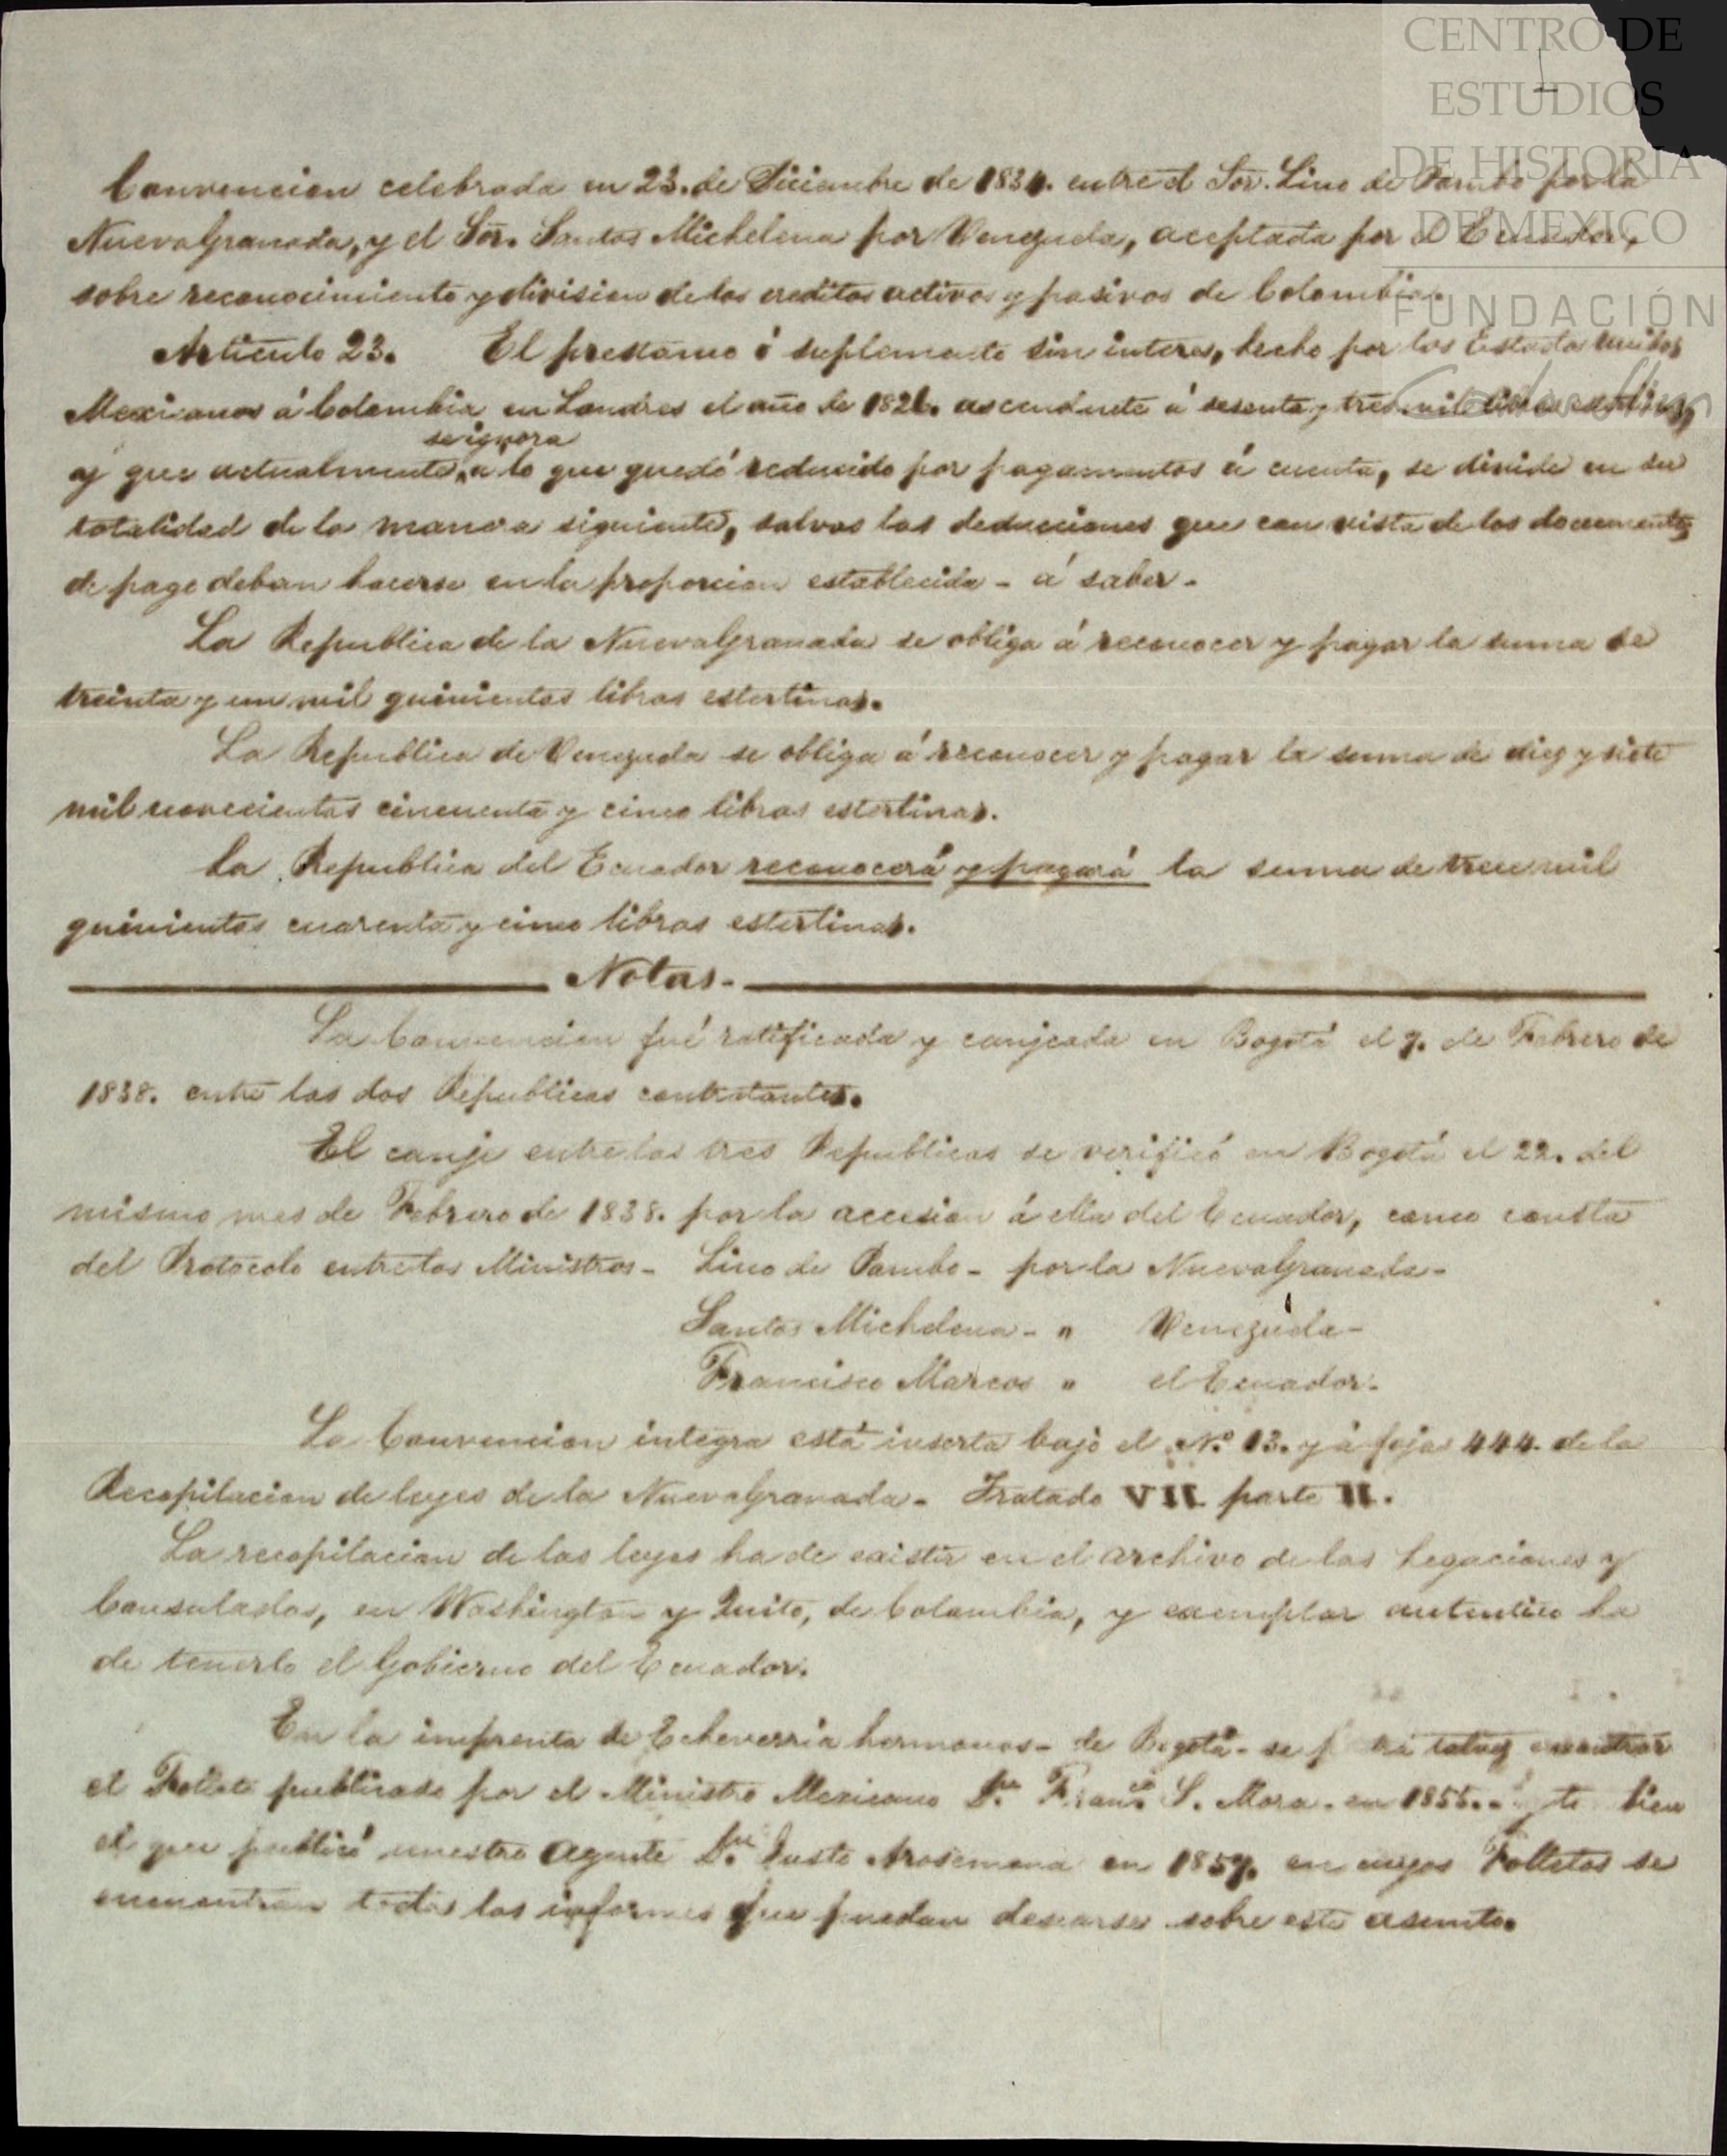 CENTRO DE
ESTUDIOS
DE HISTORIA
DE MEXICO
FUNDACIÓN
1
Convencion celebrada en 23. de Diciembre de 1834. entre el Sor. Lino de Pombo por la
Nueva Granada, y el Sor. Santos Michelena por Venezuela, aceptada por el Ecuador,
sobre reconocimiento y division de los creditos activos y pasivos de Colombia.
Articulo 23. El prestamo ó suplemento sin interes, hecho por los Estados Unidos
Mexicanos á Colombia en Londres el año de 1826. ascendente á sesenta y tres mil libras esterlinas,
se ignora
y que actualmente, a lo que quedó reducido por pagamentos á cuenta, se divide en su
totalidad de la manera siguiente, salvas las deducciones que con vista de los documentos
de pago deban hacerse en la proporcion establecida - á saber -
La Republica de la Nueva Granada se obliga á reconocer y pagar la suma de
treinta y un mil quinientas libras esterlinas.
La Republica de Venezuela se obliga á reconocer y pagar la suma de diez y siete
mil novecientas cincuenta y cinco libras esterlinas.
La Republica del Ecuador reconocerá y pagará la suma de trece mil
quinientas cuarenta y cinco libras esterlinas.
Notas -
La Convencion fué ratificada y canjeada en Bogotá el 7. de Febrero de
1838. entre las dos Republicas contratantes.
El canje entre las tres Republicas se verificó en Bogotá el 22. del
mismo mes de Febrero de 1838. por la accesion á ella del Ecuador, como consta
del Protocolo entre los Ministros - Lino de Pombo - por la Nueva Granada -
Santos Michelena - " Venezuela -
Francisco Marcos " el Ecuador -
La Convencion integra está inserta bajo el N.º 13. y á foja 444. de la
Recopilacion de leyes de la Nueva Granada - Tratado VII parte II.
La recopilacion de las leyes ha de existir en el archivo de las Legaciones y
Consulados, en Washington y Quito, de Colombia, y exemplar autentico ha
de tenerlo el Gobierno del Ecuador.
En la imprenta de Echeverria hermanos - de Bogotá - se talvez encontrar
el Folleto publicado por el Ministro Mexicano Dn. Franco. S. Mora - en 1855. - bien
el que publicó nuestro Agente Dn. Justo Arosemena en 1857. en cuyos Folletos se
encuentran todos los informes que puedan desearse sobre este asunto.